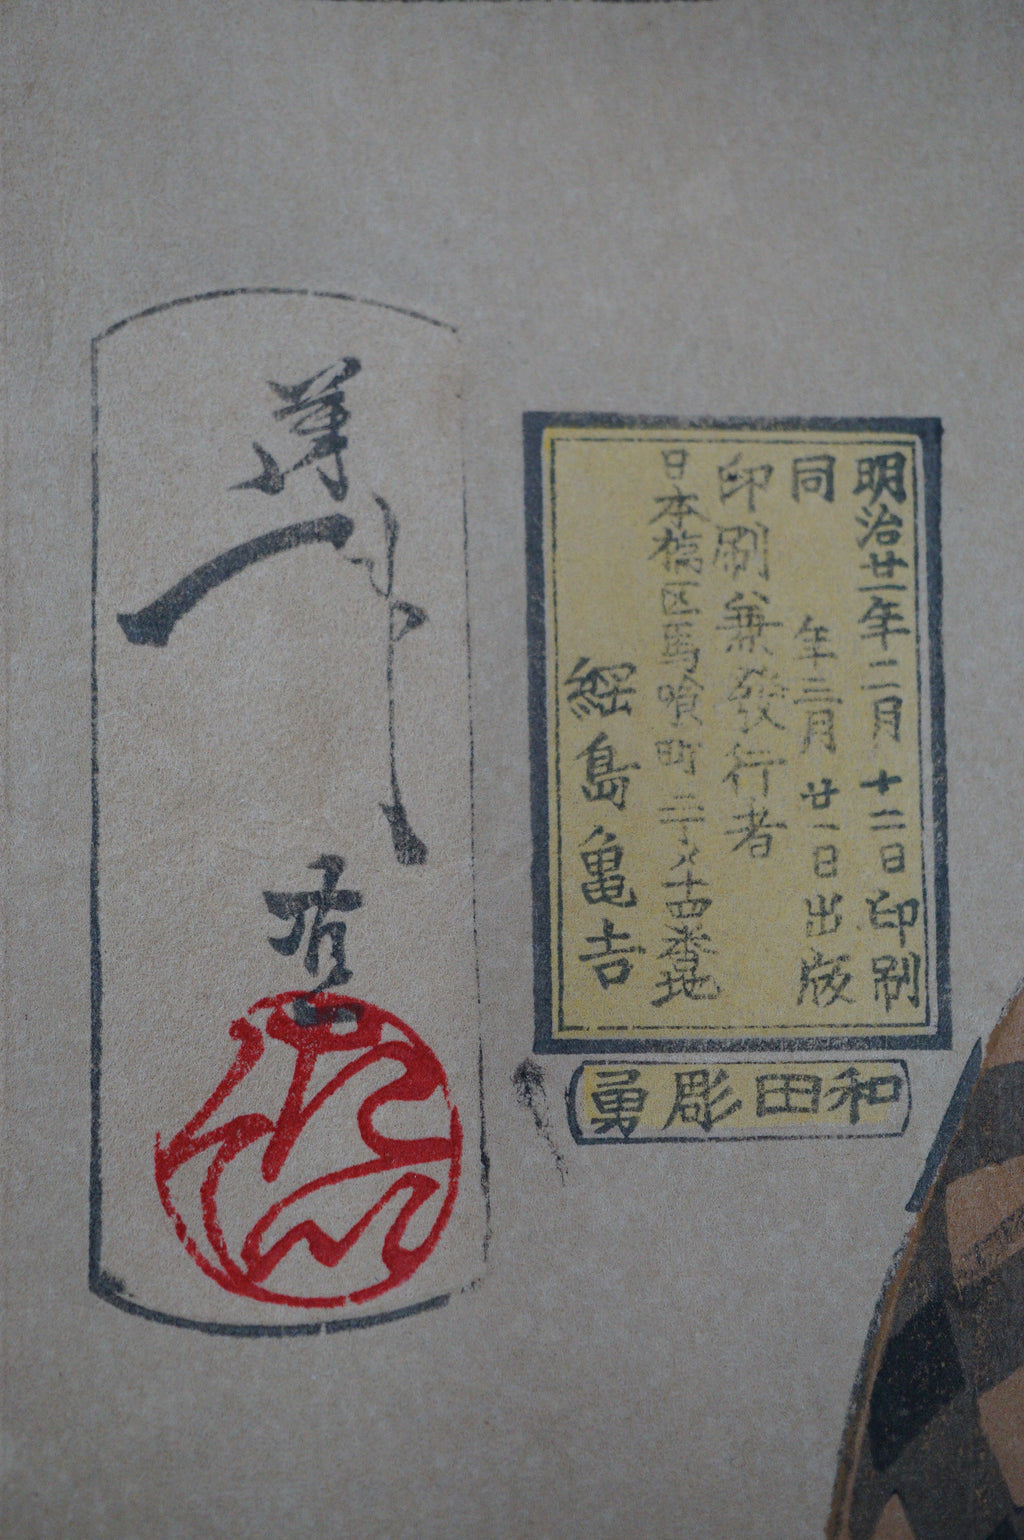 明治廿一年二月十二日印刷
同年三月廿一日出版
印刷兼發行者
日本橋区馬喰町二丁メ十四番地
綱島亀吉
和田彫勇
芳年